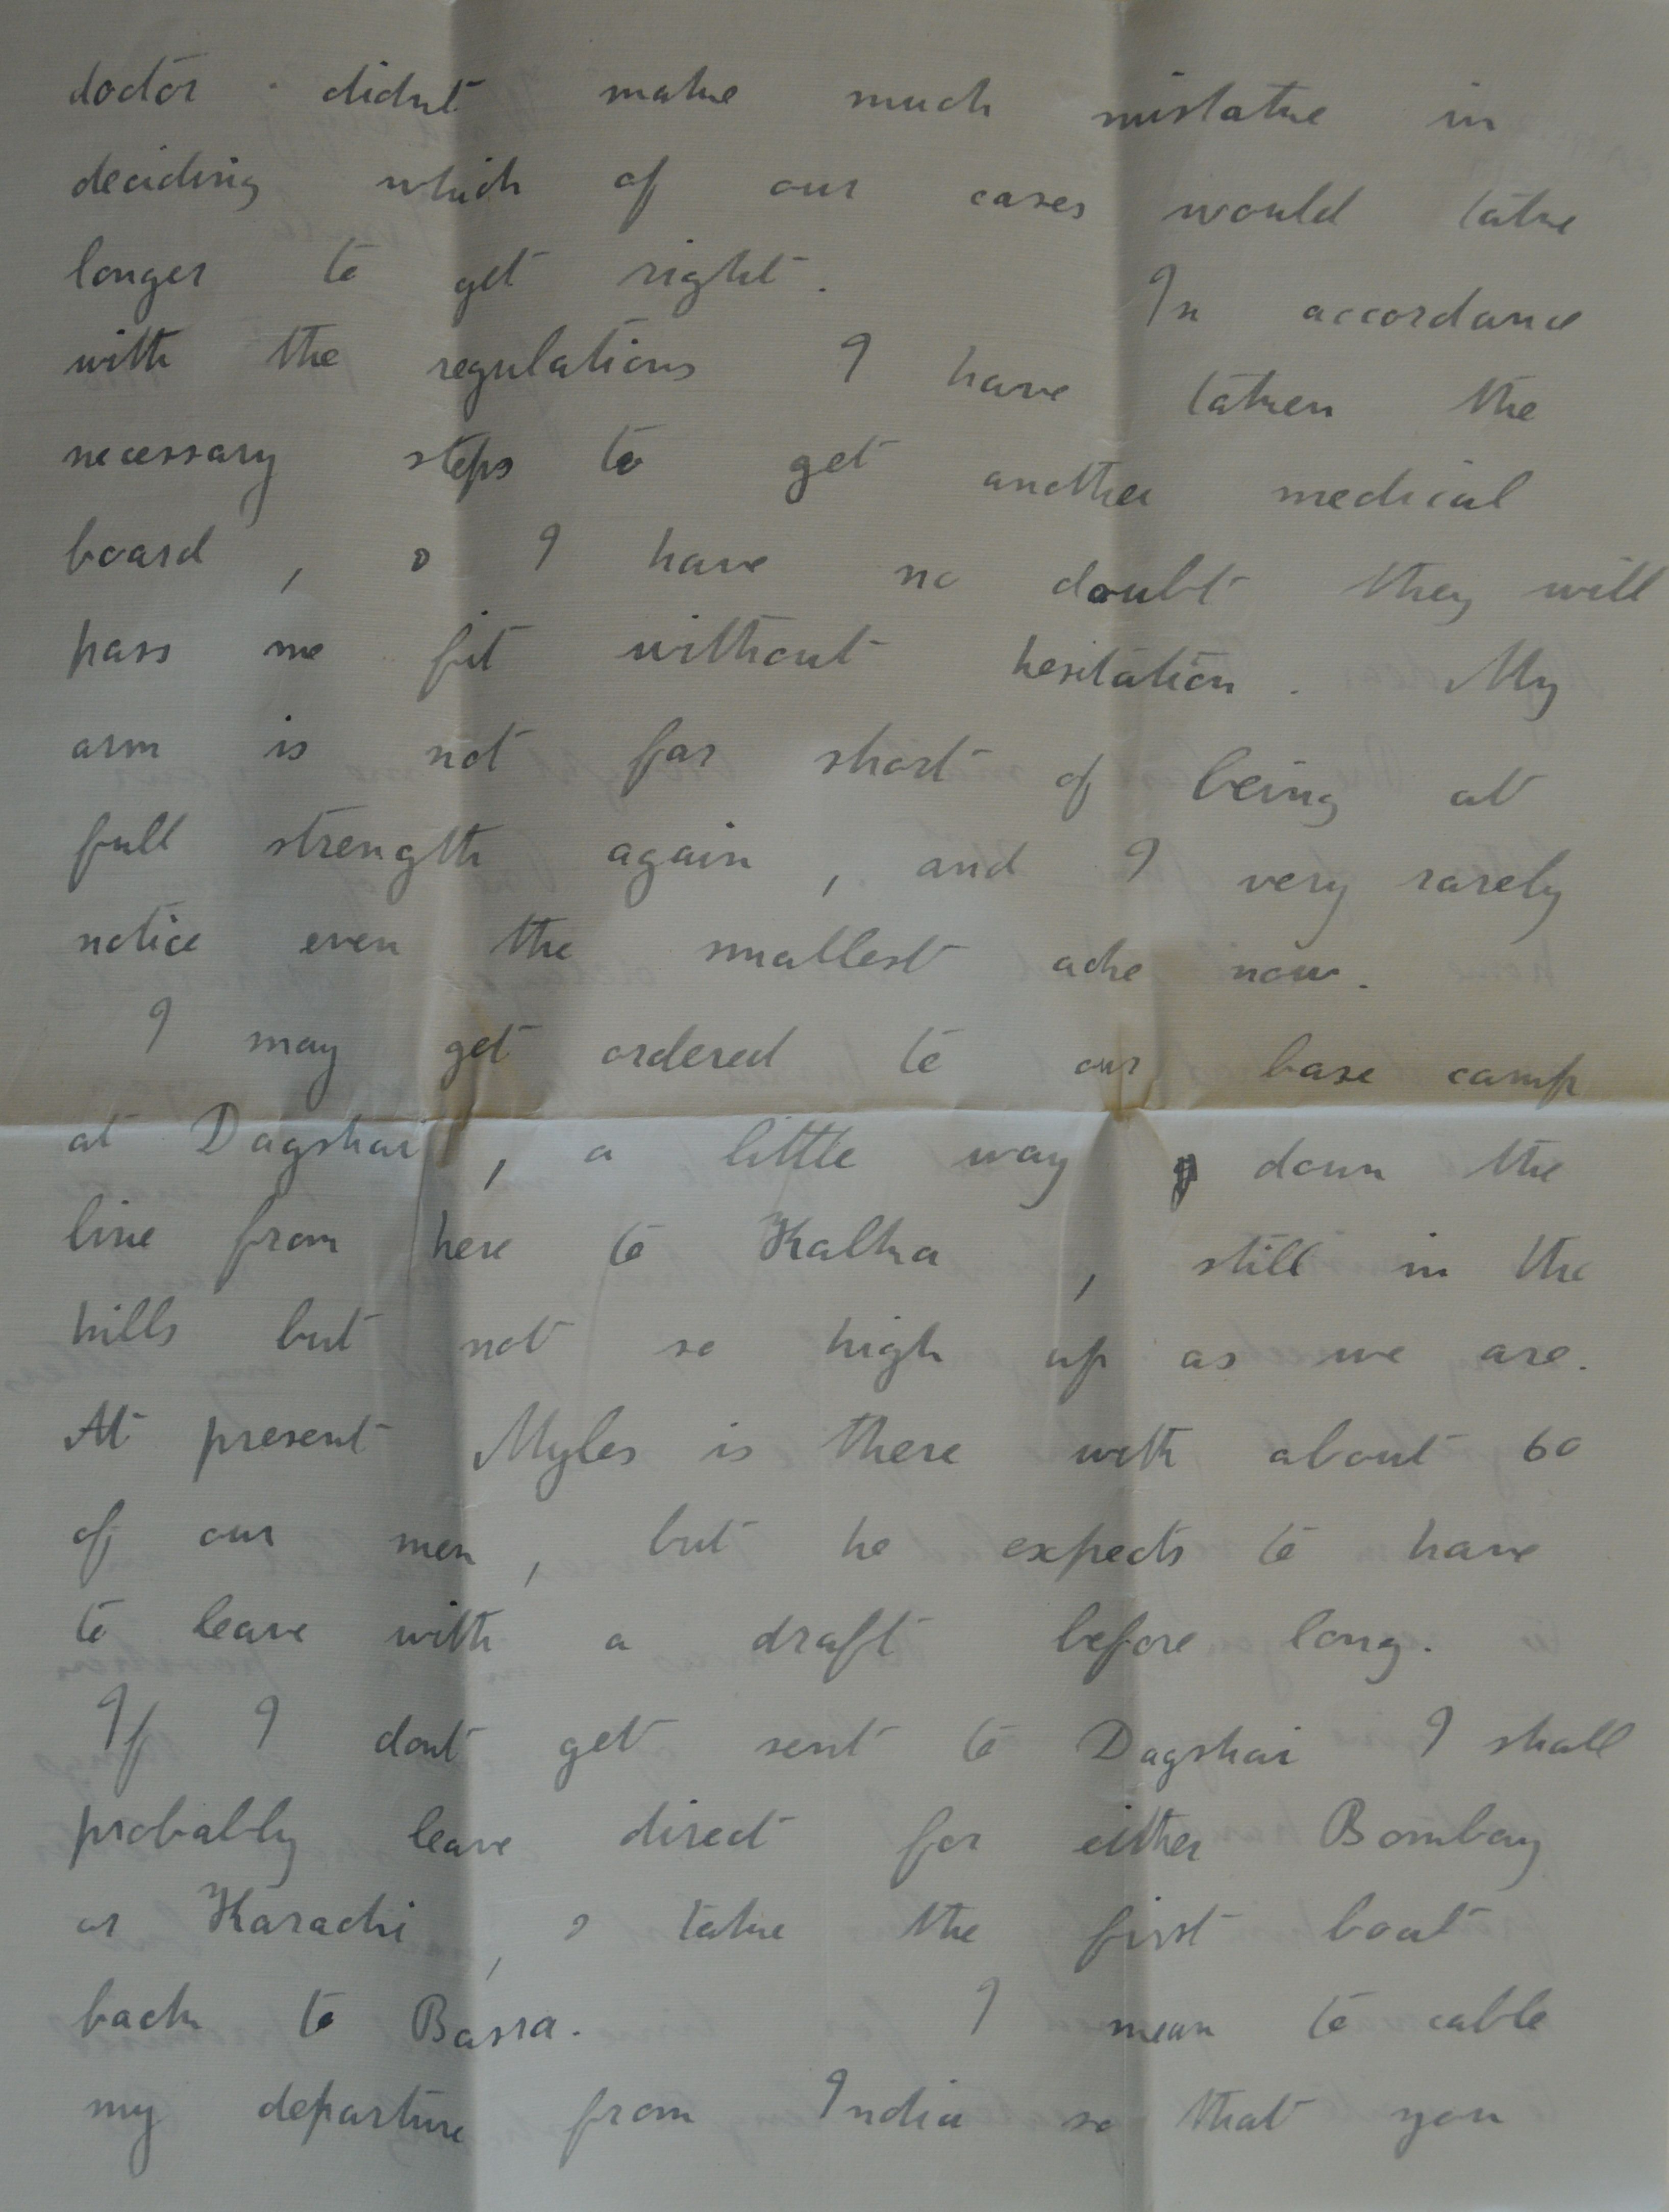 doctor didnt make much mistake in
deciding which of our cases would take
longer to get right. In accordance
with the regulations I have taken the
necessary steps to get another medical
board, & I have no doubt they will
pass me fit without hesitation. My
arm is not far short of being at
full strength again, and I very rarely
notice even the smallest ache now.
I may get ordered to our base camp
at Dagshai, a little way down the
line from here to Kalka, still in the
hills but not so high up as we are.
At present Myles is there with about 60
of our men, but he expects to have
to leave with a draft before long.
If I dont get sent to Dagshai I shall
probably leave direct for either Bombay
or Karachi, & take the first boat
back to Basra. I mean to cable
my departure from India so that you